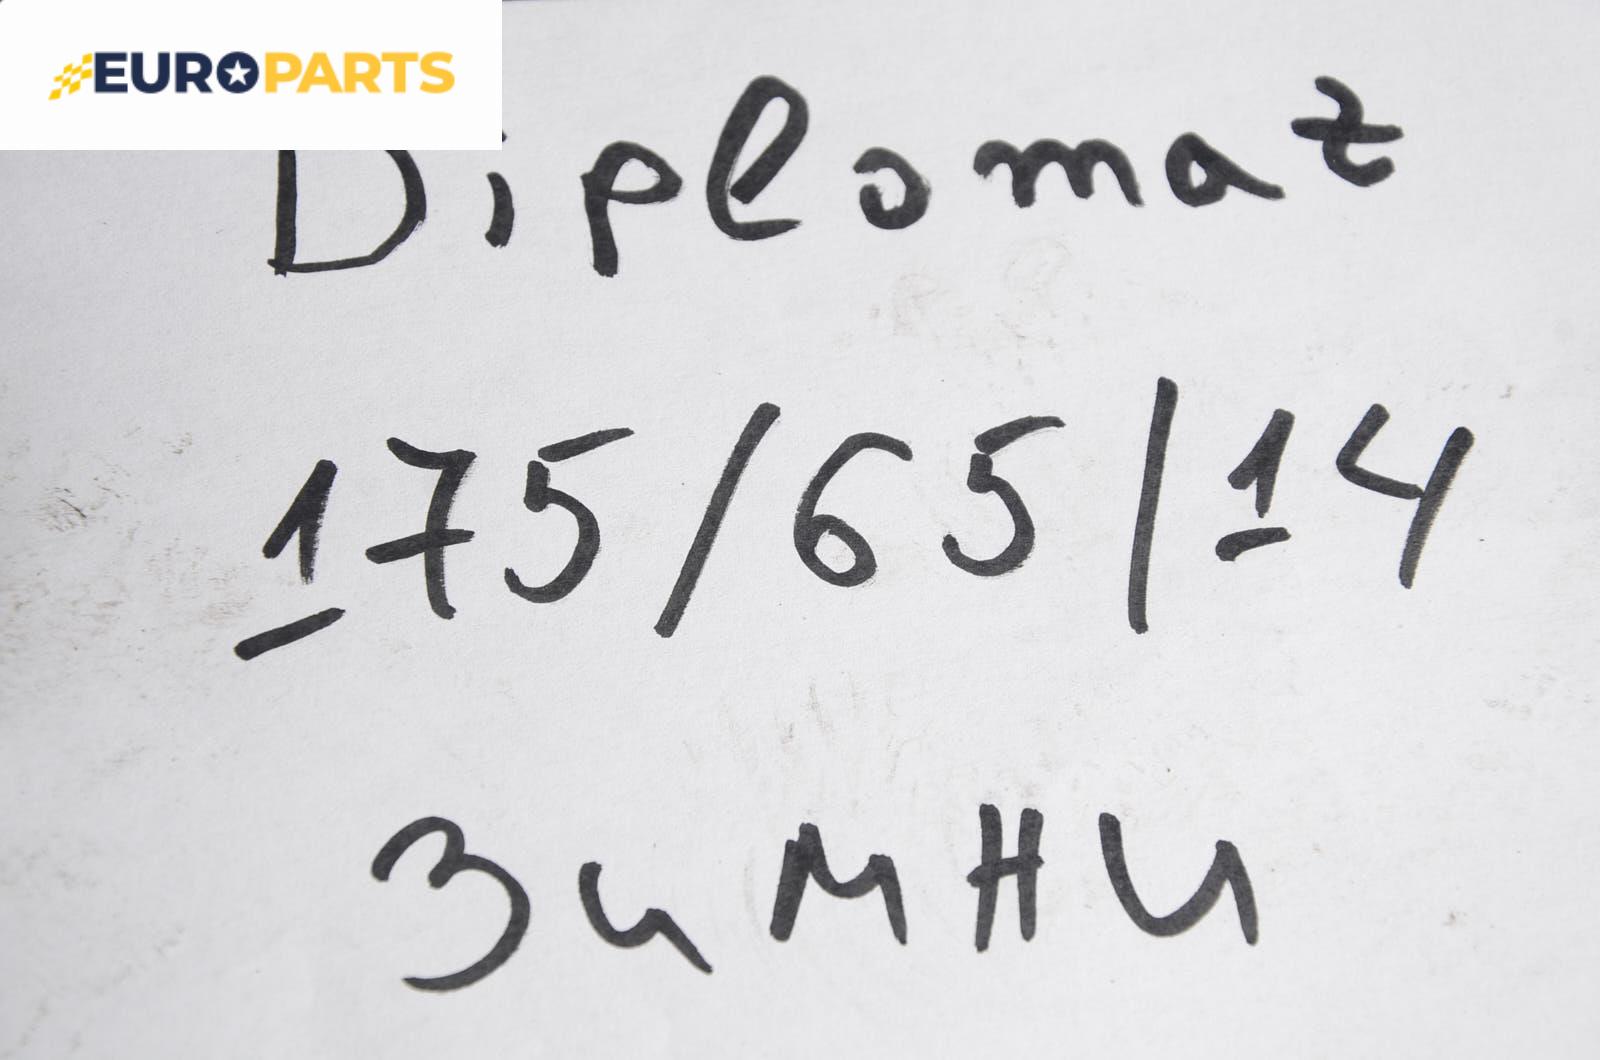 EUROPARTS
Diplomat
175/65/14
Зимни